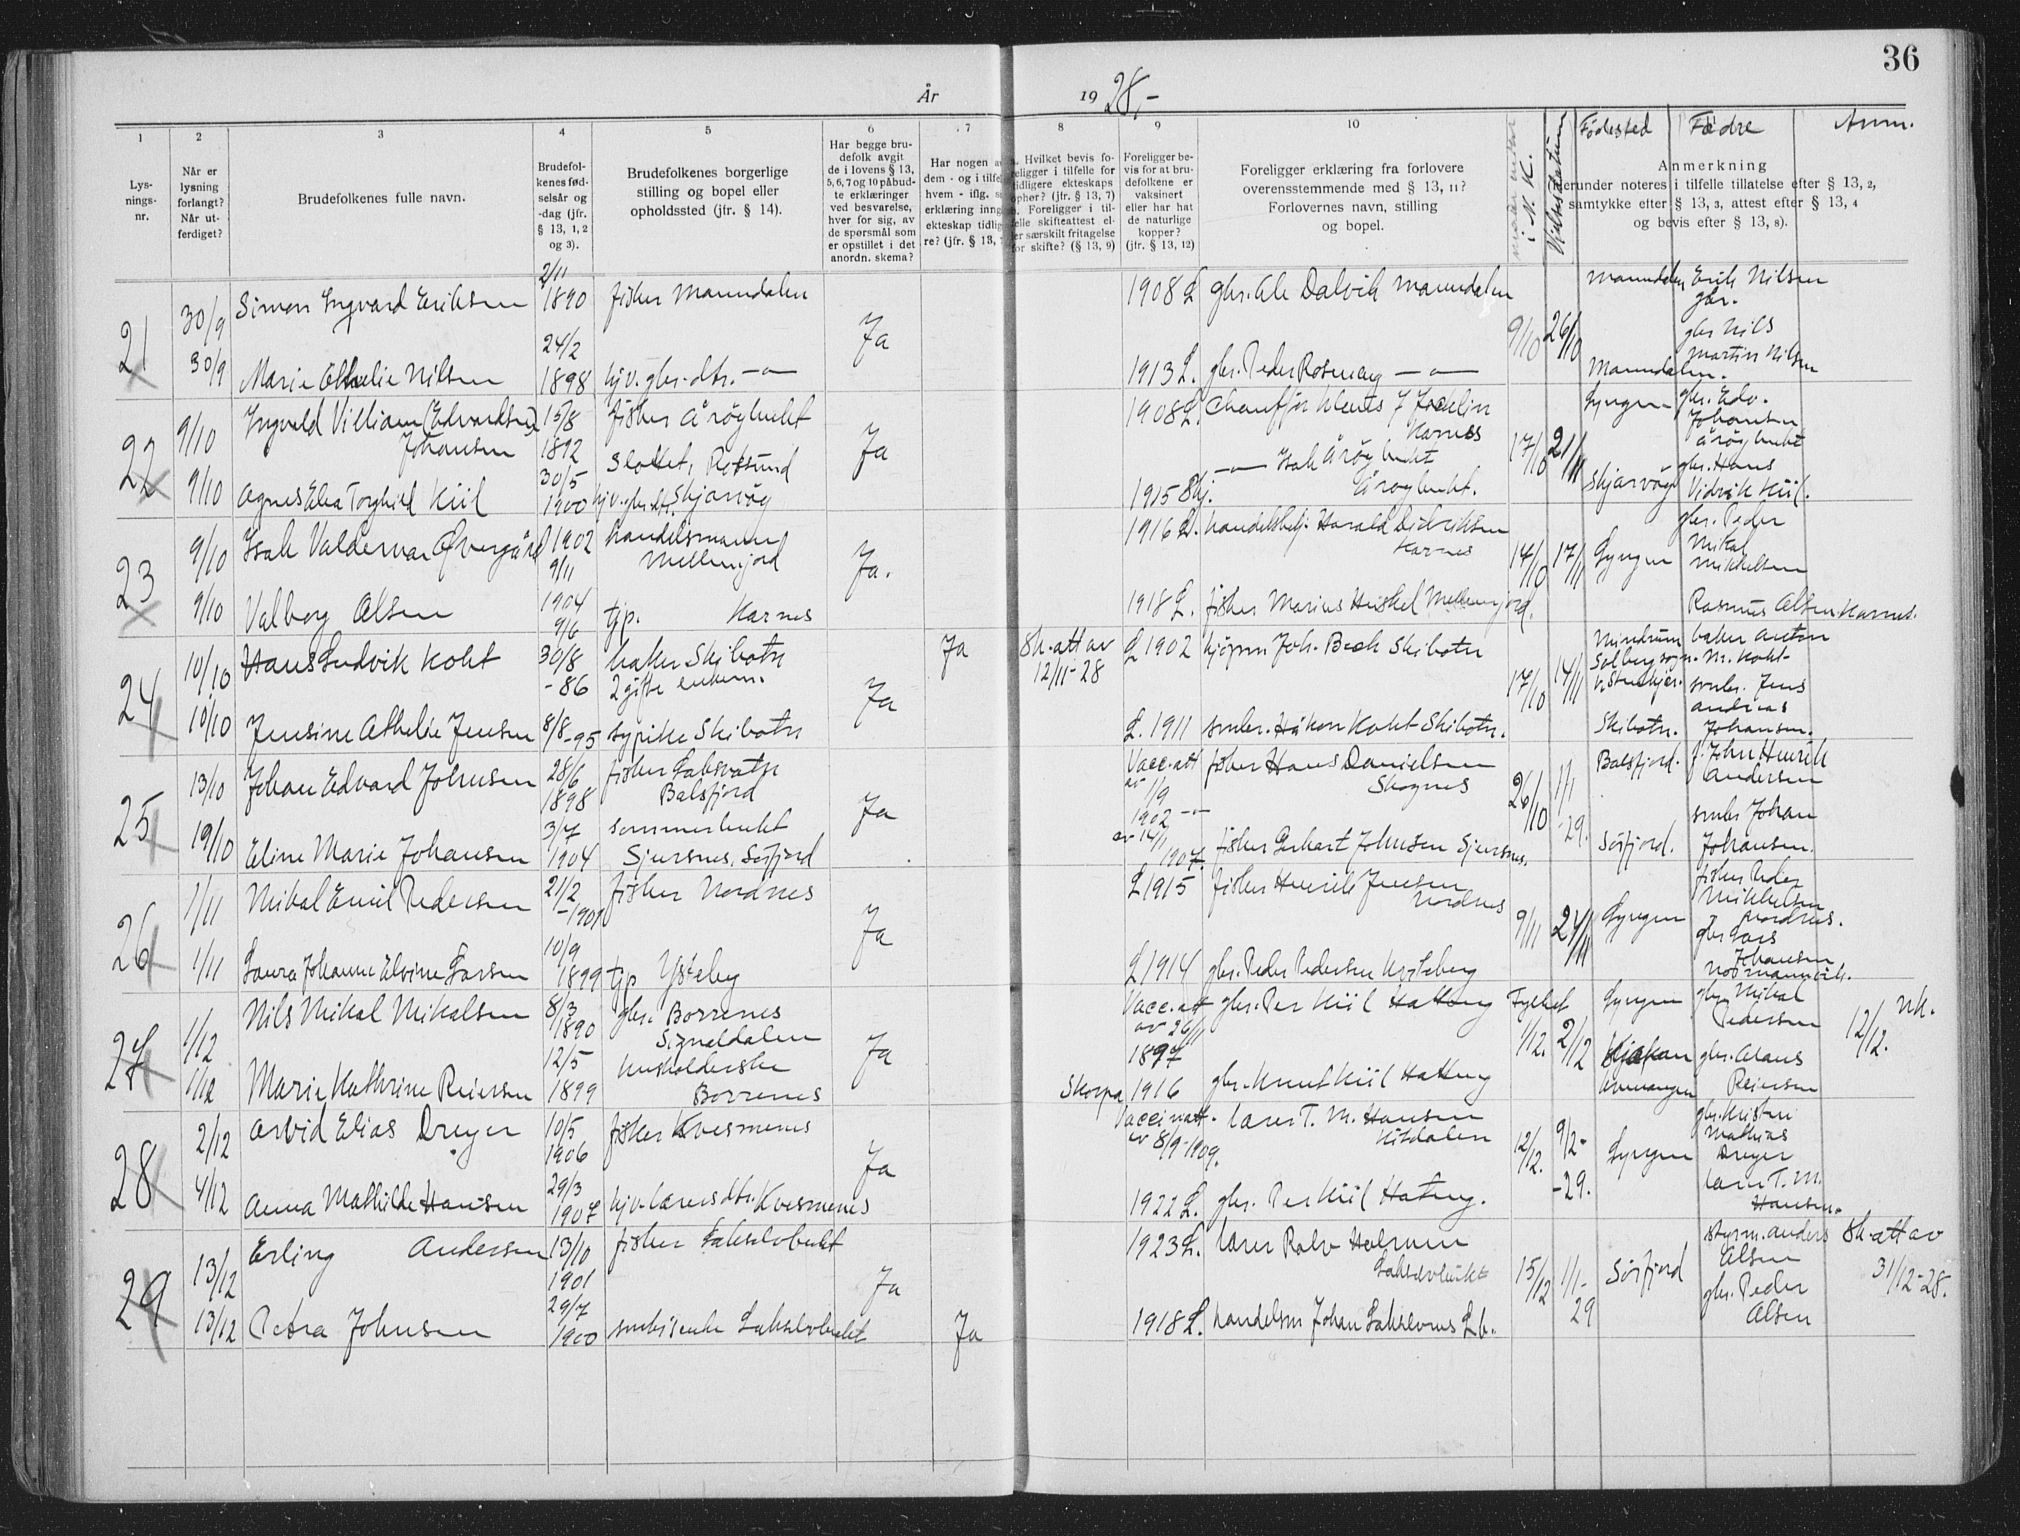 36
År 1928,-
1 2 3 4 5 6 7 8 9 10
Fødested Fædre Anm.
Lys-
nings-
nr.
Når er
lysning
forlangt?
Når ut-
ferdiget?
Brudefolkenes fulle navn.
Brudefol-
kenes fød-
selsår og
-dag (jfr.
§ 13, 1, 2
og 3).
Brudefolkenes borgerlige
stilling og bopel eller
opholdssted (jfr. § 14).
Har begge bru-
defolk avgit
de i lovens § 13,
5, 6, 7 og 10 påbud-
te erklæringer
ved besvarelse,
hver for sig, av
de spørsmål som
er opstillet i det
anordn. skema?
Har nogen a
dem - og i tilfel
hvem - iflg. s
erklæring inng
ekteskap tidlig
re? (jfr. § 13, 7
Hvilket bevis fo-
religger i tilfelle for
tidligere ekteskaps
opher? (jfr. § 13, 7)
Foreligger i til-
felle skifteattest el-
er særskilt fritagelse
for skifte? (§ 13, 9)
Foreligger be-
vis for at bru-
defolkene er
vaksinert
eller har hat
de naturlige
kopper?
(jfr. § 13, 12)
Foreligger erklæring fra forlovere
overensstemmende med § 13, 11?
Forlovernes navn, stilling
og bopel.
i N. K.
Vielsesdatum
Anmerkning
Herunder noteres i tilfelle tillatelse efter § 13, 2,
samtykke efter § 13, 3, attest efter § 13, 4
og bevis efter § 13, 8).
21 30/9 Simon Ingvard Eriksen 2/11 1890 fisker Manndalen Ja 1908 L gbr. Ole Dalvik Manndalen 9/10 26/10 Manndalen Erik Nilsen gbr.
30/9 Marie Othelie Nilsen 24/2 1898 hjv. gbr. dtr. -"- 1913 L. gbr. Peder Rosmæg -"- Manndalen. gbr Nils Martin Nilsen
22 9/10 Ingvald Villiam (Edvardsen) Johansen 15/8 1892 fisker Årøybukt Ja 1908 L. Chauffør Klemet J Joelin Karnes 17/10 21/11 Lyngen gbr. Edv. Johansen Årøybukt
9/10 Agnes Elea Torghild Kiil 30/5 1900 Slottet, Rotsund hjv. gbr. dtr. Skjervøy 1915 Skj. -"- Isak Årøybukt Årøybukt. Skjærvøy gbr. Hans Vidvik Kiil.
23 9/10 Isak Valdemar Øvergård 1902 9/11 handelsmann Mellemjord Ja. 1916 L. handelsbetj. Harald Didriksen Karnes 14/10 17/11 Lyngen gbr. Peder Mikal Mikkelsen
9/10 Valborg Olsen 1904 9/6 tjp. Karnes 1918 L. fisker Marius Heiskel Mellemjord. Rasmus Olsen Karnes.
24 10/10 Hans Ludvik Koht 30/8 -86 baker Skibotn 2 gifte enkem. Ja Ja Sk. att av 12/11-28 L 1902 kjøpm Joh. Beck Skibotn 17/10 14/11 Solbergsogn. baker Anton M. Koht
10/10 Jensine Athelie Jensen 8/8-95 sypike Skibotn L. 1911 smbr. Håkon Koht Skibotn. Skibotn. smbr. Jens Andreas Johansen.
25 13/10 Johan Edvard Johnsen 28/6 1898 fisker Laksvatn Balsfjord Ja Vacc. att av 1/9 1902 fisker Hans Danielsen Skognes 26/10 1/1-29. Balsfjord. f. John Henrik Andersen
19/10 Eline Marie Johansen 3/7 1904 Sommerbukt Sjursnes, Sørfjord -"- av 14/11 1907. fisker Gerhart Johnsen Sjursnes. Sørfjord. smbr Johan Johansen.
26 1/11 Mikal Emil Pedersen 21/2-1901 fisker Nordnes Ja L 1915 fisker Henrik Jensen Nordnes 9/11 24/11 Lyngen fisker Peder Mikkelsen Nordnes.
1/11 Laura Johanne Elvine Larsen 10/9 1899 tjp Ysteby L 1914 gbr. Peder Pedersen gbr Lars Johansen Normannvik.
27 1/12 Nils Mikal Mikalsen 8/3 1890 gbr. Borrenes Signaldalen Ja Vacc. att av 26/11 1897 gbr. Per Kiil Hatteng Fylket 1/12. 2/12 Lyngen gbr Mikal Pedersen 12/12. nk.
1/12 Marie Kathrine Reiersen 12/5 1899 husholderske Borrenes Skorpa 1916 gbr. Knut Kiil Hatteng Kvænangen gbr. Claus Reiersen
28 2/12 Arvid Elias Dreyer 10/5 1906 fisker Kvesmenes Ja Vaccinatt. av 8/9-1909. lærer T. M. Hansen Kitdalen 12/12. 9/2--29. Lyngen gbr. Kristen Mathias Dreyer
4/12 Anna Mathilde Hansen 29/3 1907 hjv. lærers dtr. Kvesmenes 1922 L. gbr. Per Kiil Hatteng. lærer T. M. Hansen.
29 13/12 Erling Andersen 13/10 1901 fisker Lakselvbukt Ja 1923 L. lærer Rolv Halmen Lakselvbukt 15/12 1/1-29 Sørfjord styrm. Anders Olsen Sk. att av 31/12-28.
13/12 Petra Johnsen 29/7 1900 småbr.enke Lakselvbukt Ja 1918 L. handelsm Johan Lakselvnes Lb. gbr. Peder Olsen